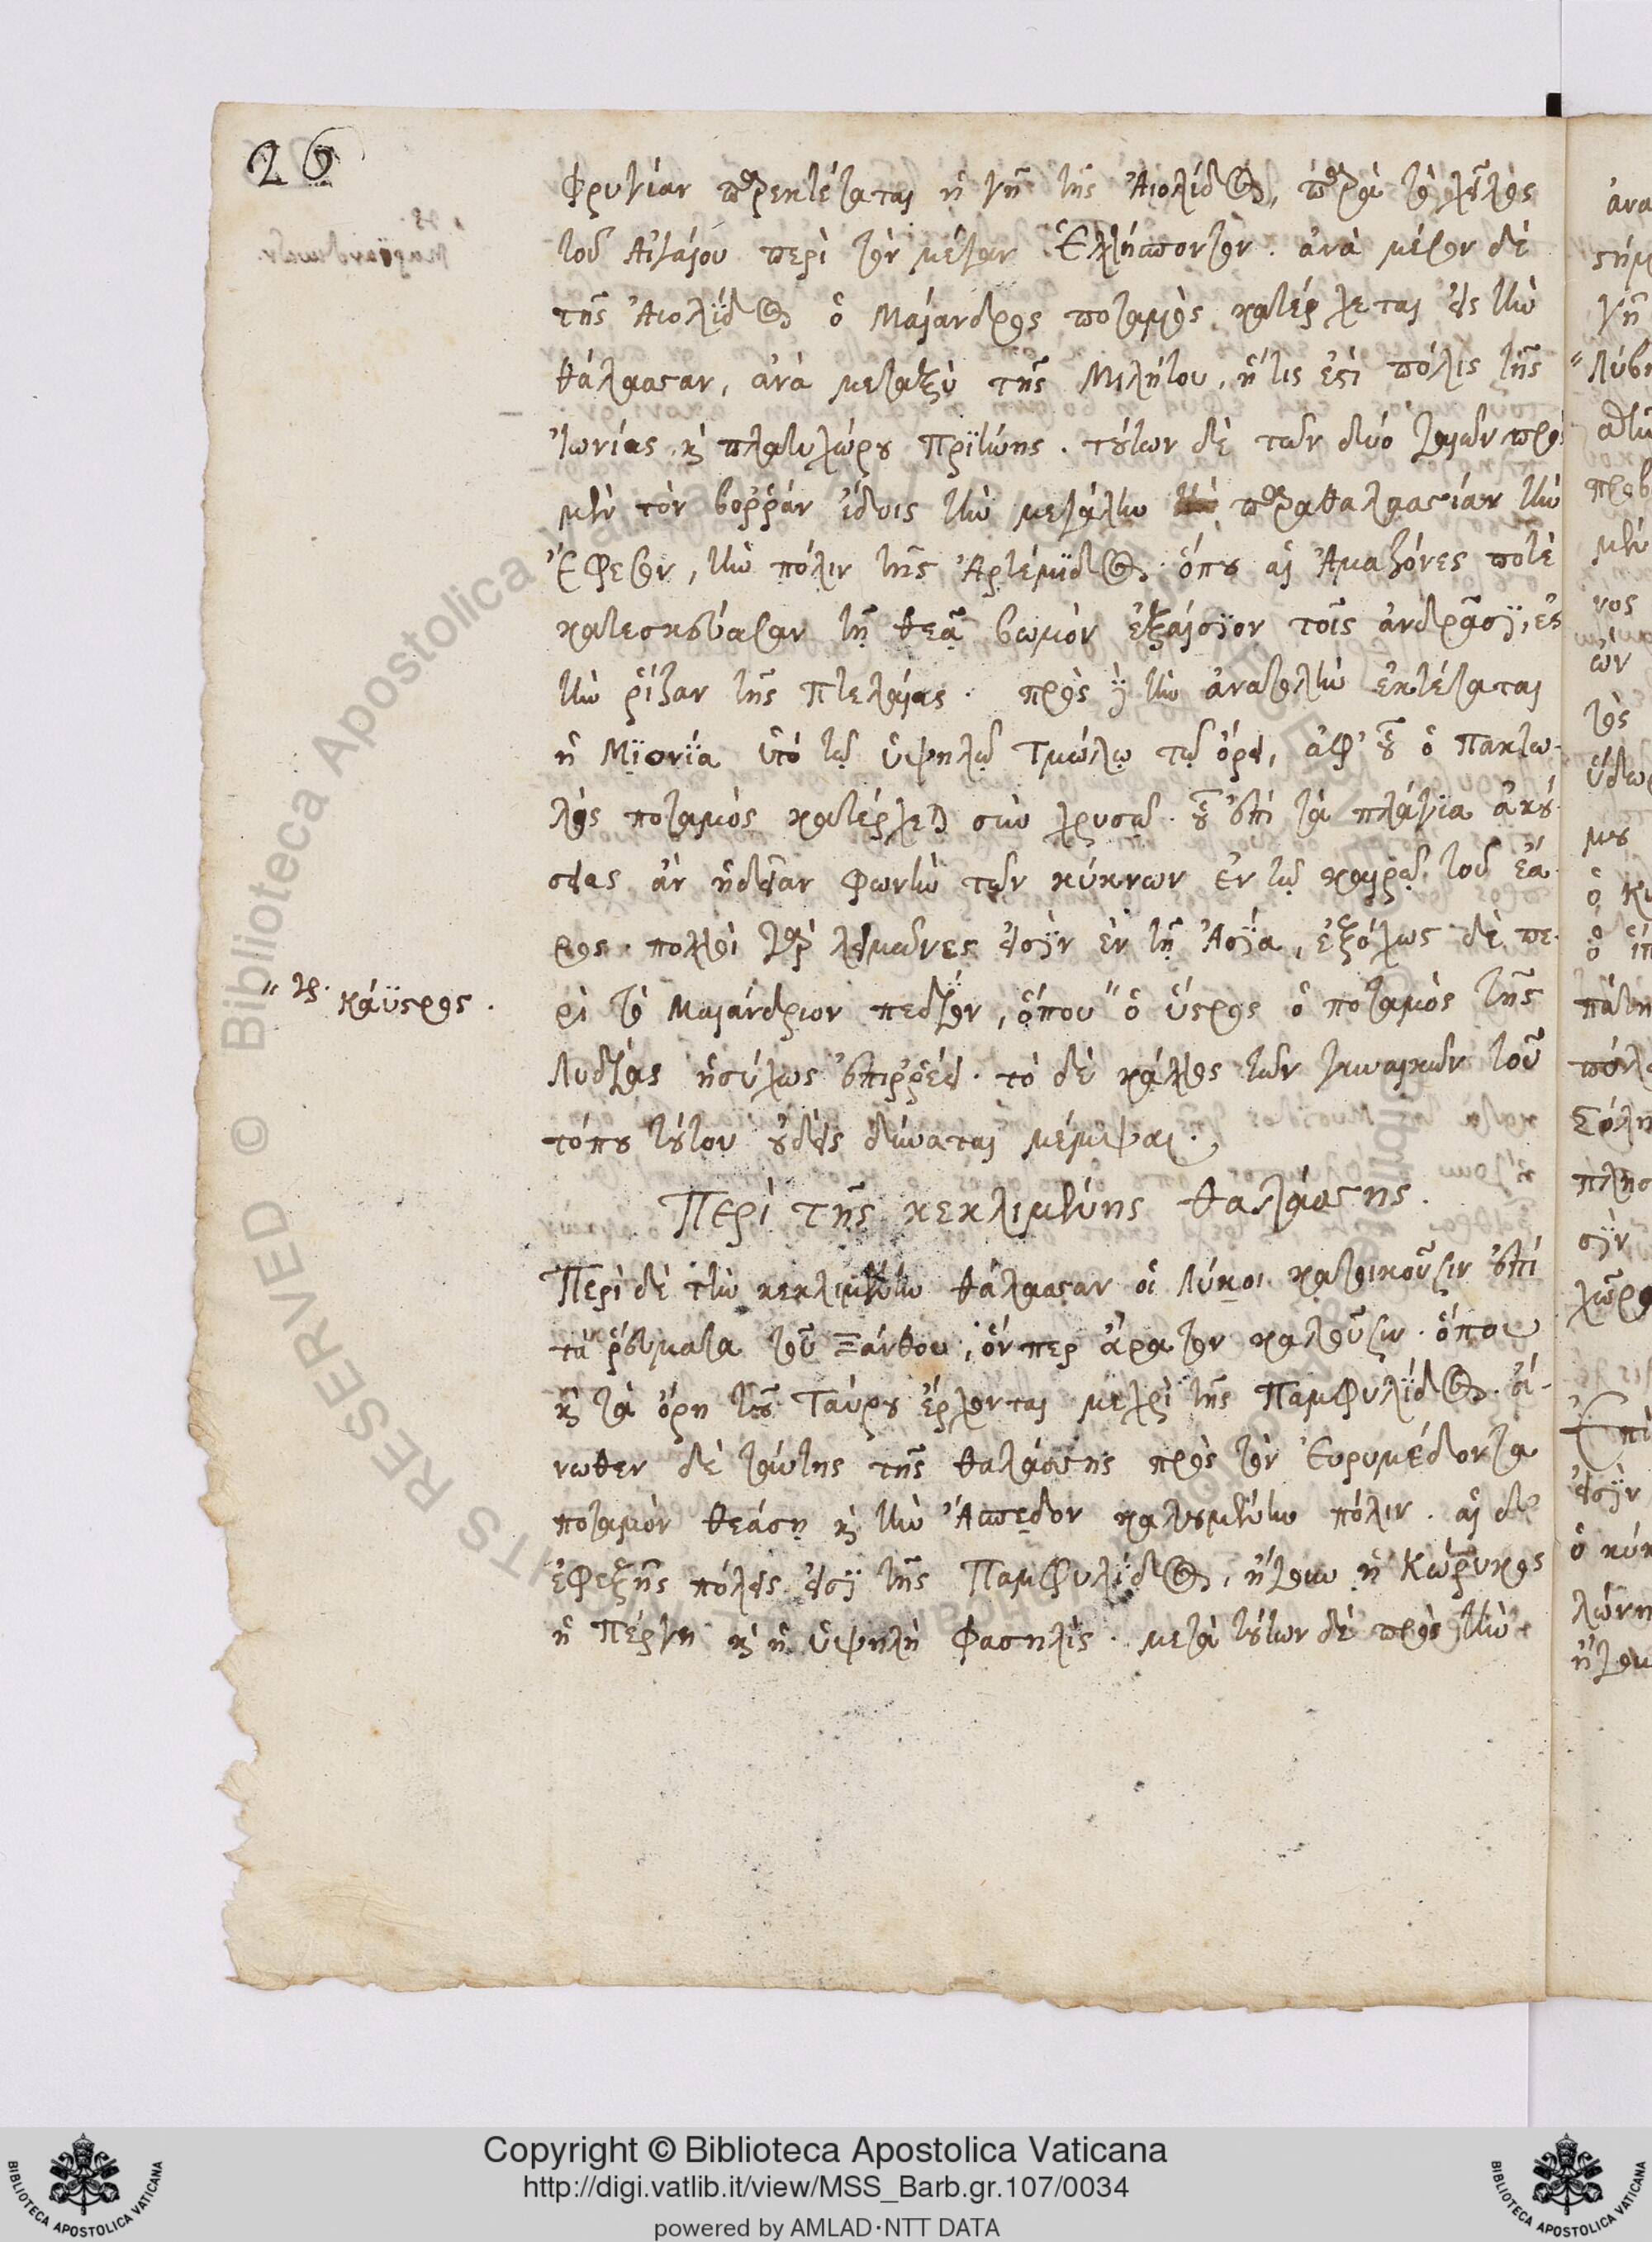 26
Φρυγίαν παρεκτέταται ἡ γῆ τῆς Αἰολίδος, παρὰ τὸ χεῖλος
τοῦ Αἰγαίου περὶ τὸν μέγαν Ἑλλήσποντον. ἀνὰ μέσον δὲ
τῆς Αἰολίδος ὁ Μαίανδρος ποταμὸς κατέρχεται εἰς τὴν
θάλασσαν, ἀνὰ μεταξὺ τῆς Μιλήτου, ἥτις ἐστὶ πόλις τῆς
Ἰωνίας, καὶ πλατυχώρου Πριώνης. τούτων δὲ τῶν δύο γαιῶν πρὸς
μὲν τὸν βοῤῥᾶν ἴδοις τὴν μεγάλην παραθαλασσίαν τὴν
Ἔφεσον, τὴν πόλιν τῆς Ἀρτέμιδος. ὅπου αἱ Ἀμαζόνες ποτὲ
κατεσκεύασαν τῇ θεᾷ βωμὸν ἐξαίσιον τοῖς ἀνδράσι, ἐς
τὴν ῥίζαν τῆς Πτελαίας. πρὸς γ τὴν ἀνατολὴν ἐκτέταται
ἡ Μιονία ὑπὸ τῷ ὑψηλῷ Τμώλῳ τῷ ὄρει, ἀφ' οὗ ὁ Πακτω-
λὸς ποταμὸς κατέρχεται σὺν χρυσῷ. οὗ ἐπὶ τὰ πλάγια ἀκού-
σειας ἂν ἡδεῖαν φωνὴν τῶν κύκνων ἐν τῷ καιρῷ τοῦ ἔα-
ρος. πολλοὶ γὰρ λειμῶνες εἰσὶν ἐν τῇ Ἀσίᾳ, ἐξόχως δὲ πε-
ρὶ τὸ Μαιάνδριον πεδίον, ὅπου " ὁ ὕστρος ὁ ποταμὸς τῆς
" γρ. κάϋστρος.
Λυδίας ἡσύχως ἐπιῤῥέει. τὸ δὲ κάλλος τῶν γυναικῶν τοῦ
τόπου τούτου οὐδεὶς δύναται μέμψαι.
Περὶ τῆς κεκλιμένης θαλάσσης.
Περὶ δὲ τὴν κεκλιμένην θάλασσαν οἱ Λύκοι κατοικοῦσιν ἐπὶ
τὰ ῥεύματα τοῦ Ξάνθου, ὅνπερ ἄρατον καλοῦσιν. ὅπου
καὶ τὰ ὄρη τοῦ Ταύρου ἔρχονται μέχρι τῆς Παμφυλίδος. ἄ-
νωθεν δὲ ταύτης τῆς θαλάσσης πρὸς τὸν Εὐρυμέδοντα
ποταμὸν θεάσῃ καὶ τὴν Ἄσπεδον καλουμένην πόλιν. αἱ δ'
ἐφεξῆς πόλεις εἰσὶ τῆς Παμφυλίδος, ἤγουν ἡ Κώρυκος
ἡ Πέργη καὶ ἡ ὑψηλὴ Φασηλίς. μετὰ τούτων δὲ πρὸς τὴν
Copyright © Biblioteca Apostolica Vaticana
http://digi.vatlib.it/view/MSS_Barb.gr.107/0034
powered by AMLAD·NTT DATA